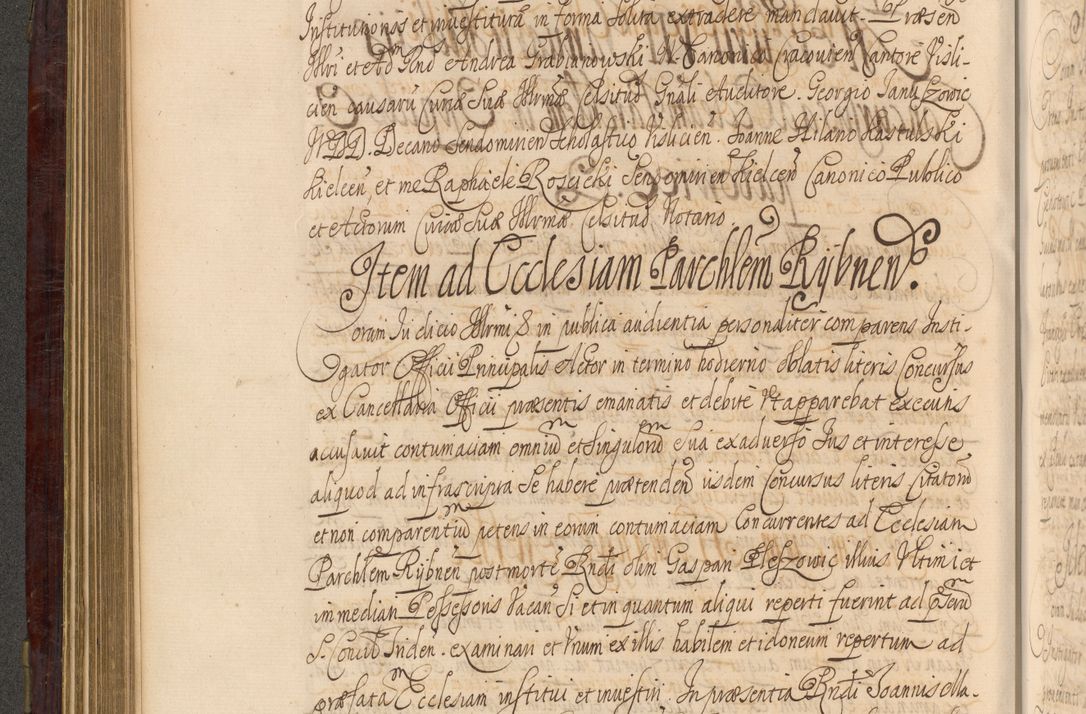 Institutionis et investiturã in forma solita extradere mandavit. Præsen
Illri et Ad Rnd Andrea Grabianowski N. Canonico Cracovien Cantore Visli-
cien causarũ Curiæ Suæ Illrmæ Celsitud Gnãli Auditore. Georgio Januszowic
Decano Sendomirien Scholastico Vislicien. Joanne Hilario
Kielcen, et me Raphaele Roscicki Sendomirien Kielcen Canonico Publico
et Actorum Curiæ Suæ Illrmæ Celsitud Notario.
Item ad Ecclesiam Parchlem Rÿbnen.
Coram Judicio Illrmi & in publica audientia personaliter comparens Insti-
gator Officii Principalis Actor in termino hodierno oblatis literis Concursus
ex Cancellaria Officii præsentis emanatis et debite Vt apparebat executis
accusavit contumaciam omniũ et singulorũ sua ex adverso Jus et interesse
aliquod ad infrascripta se habere prætendeñ iisdem Concursus literis Citatorũ
et non comparentiũ petens in eorum contumaciam Concurrentes ad Ecclesiam
Parchlem Rÿbnen post mortẽ Rndi olim Gaspari Pleszowic illius Vltimi et
immediati Possessoris Vacañ Si et in quantum aliqui reperti fuerint ad
S. Concil Triden. examinari et Vnum ex illis habilem et idoneum repertum ad
præfatã Ecclesiam institui et investiri. In præsentia Rndi Joannis Ma-